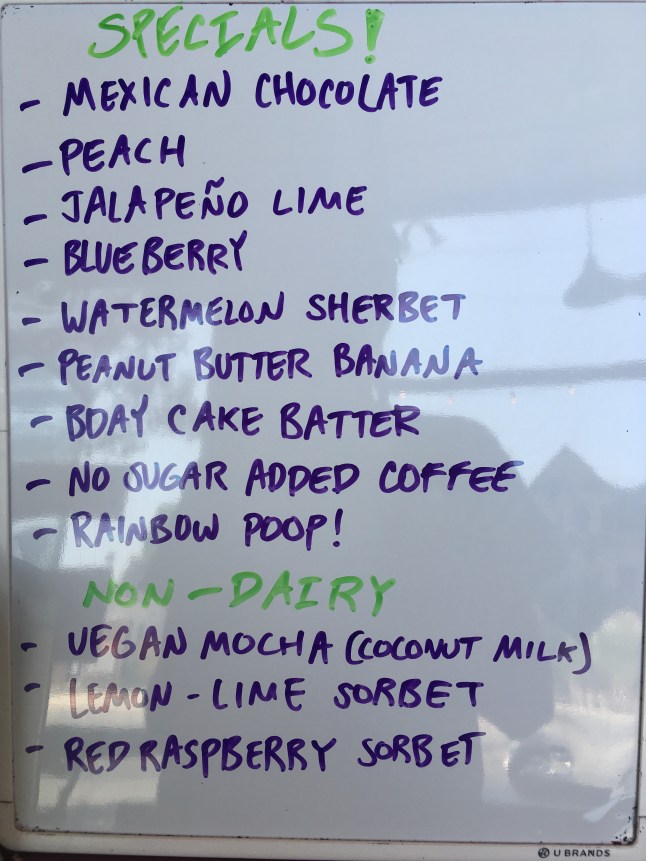 SPECIALS!
- MEXICAN CHOCOLATE
- PEACH
- JALAPEÑO LIME
- BLUEBERRY
- WATERMELON SHERBET
- PEANUT BUTTER BANANA
- BDAY CAKE BATTER
- NO SUGAR ADDED COFFEE
- RAINBOW POOP!
NON-DAIRY
- VEGAN MOCHA (COCONUT MILK)
- LEMON-LIME SORBET
- RED RASPBERRY SORBET
U BRANDS